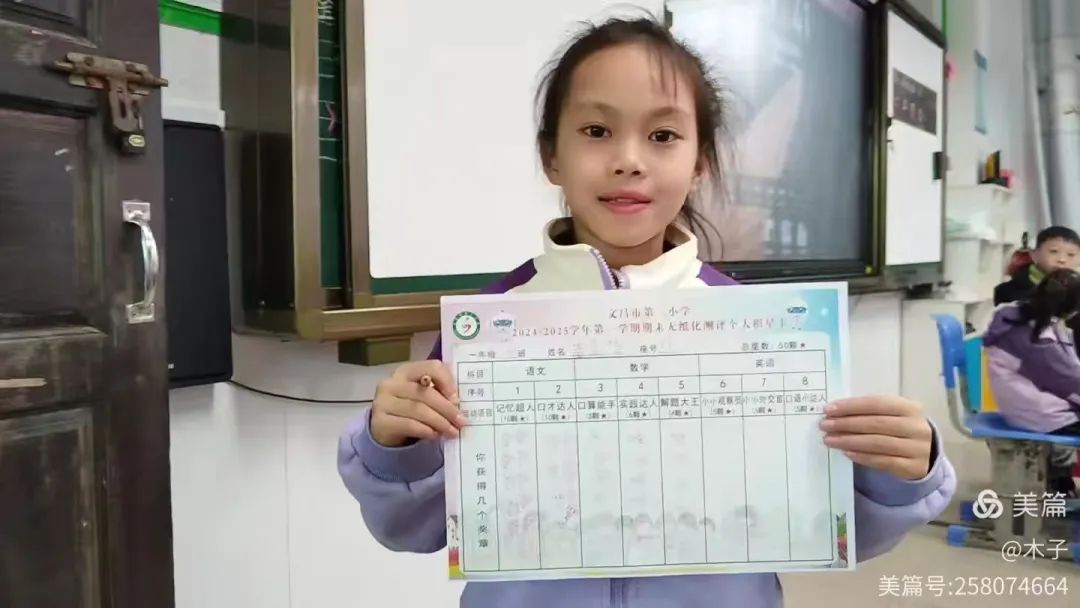 文昌市第一小学
2024-2025学年第一学期期末无纸化测评个人积星卡
一年级 班 姓名 座号 总星数：50颗★
科目 语文 数学 英语
序号 1 2 3 4 5 6 7 8
记忆超人 口才达人 口算能手 实践达人 解题大王 小小观察员 小小外交官 口语小达人
(10颗★) (10颗★) (5颗★) (5颗★) (5颗★)
你获得几个奖章
美篇
@木子
美篇号:258074664